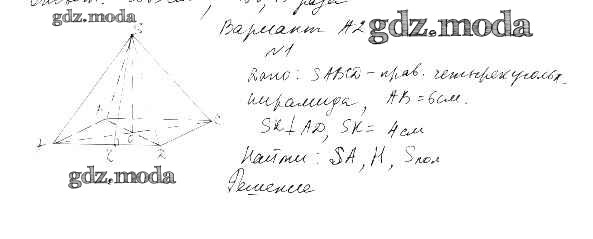 gdz.moda
Вариант А2 gdz.moda
N1
S
Дано: SABCD – прав. четырехугольн.
пирамида, AB = 6 см.
SK ⊥ AD, SK = 4 см
Найти: SA, H, Sпол
gdz.moda
Решение